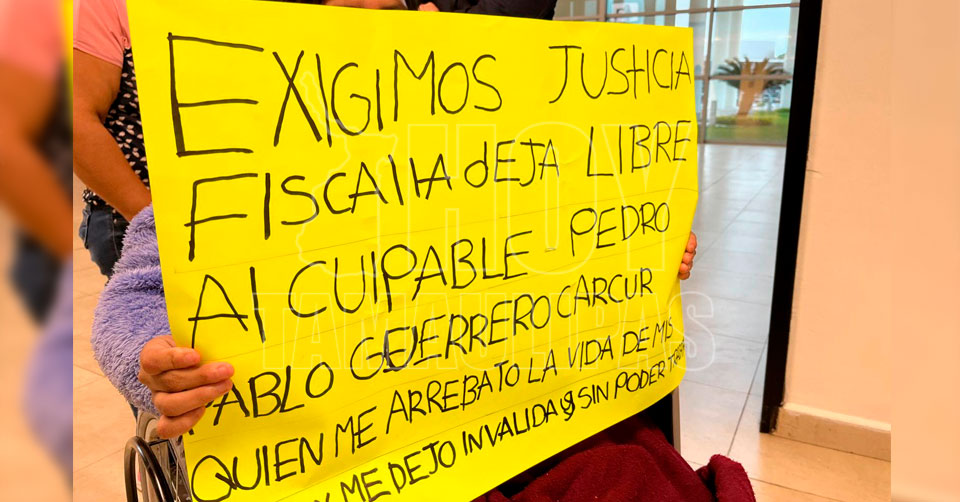 EXIGIMOS JUSTICIA
FISCALIA dEJA LIBRE
Al CUlPABLE - PEDRO
PABLO GEJERRERO CARCUR
QUIEN ME ARREBATO LA VIDA DE MIS
Y ME DEJO INVALIDA y SIN PODER
HOY
TAMAULIPAS